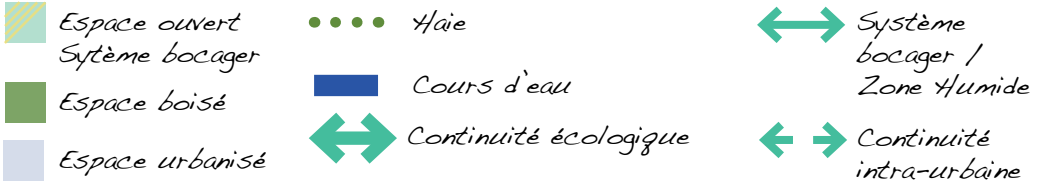 Espace ouvert
Sytème bocager
Espace boisé
Espace urbanisé
Haie
Cours d'eau
Continuité écologique
Système
bocager /
Zone Humide
Continuité
intra-urbaine